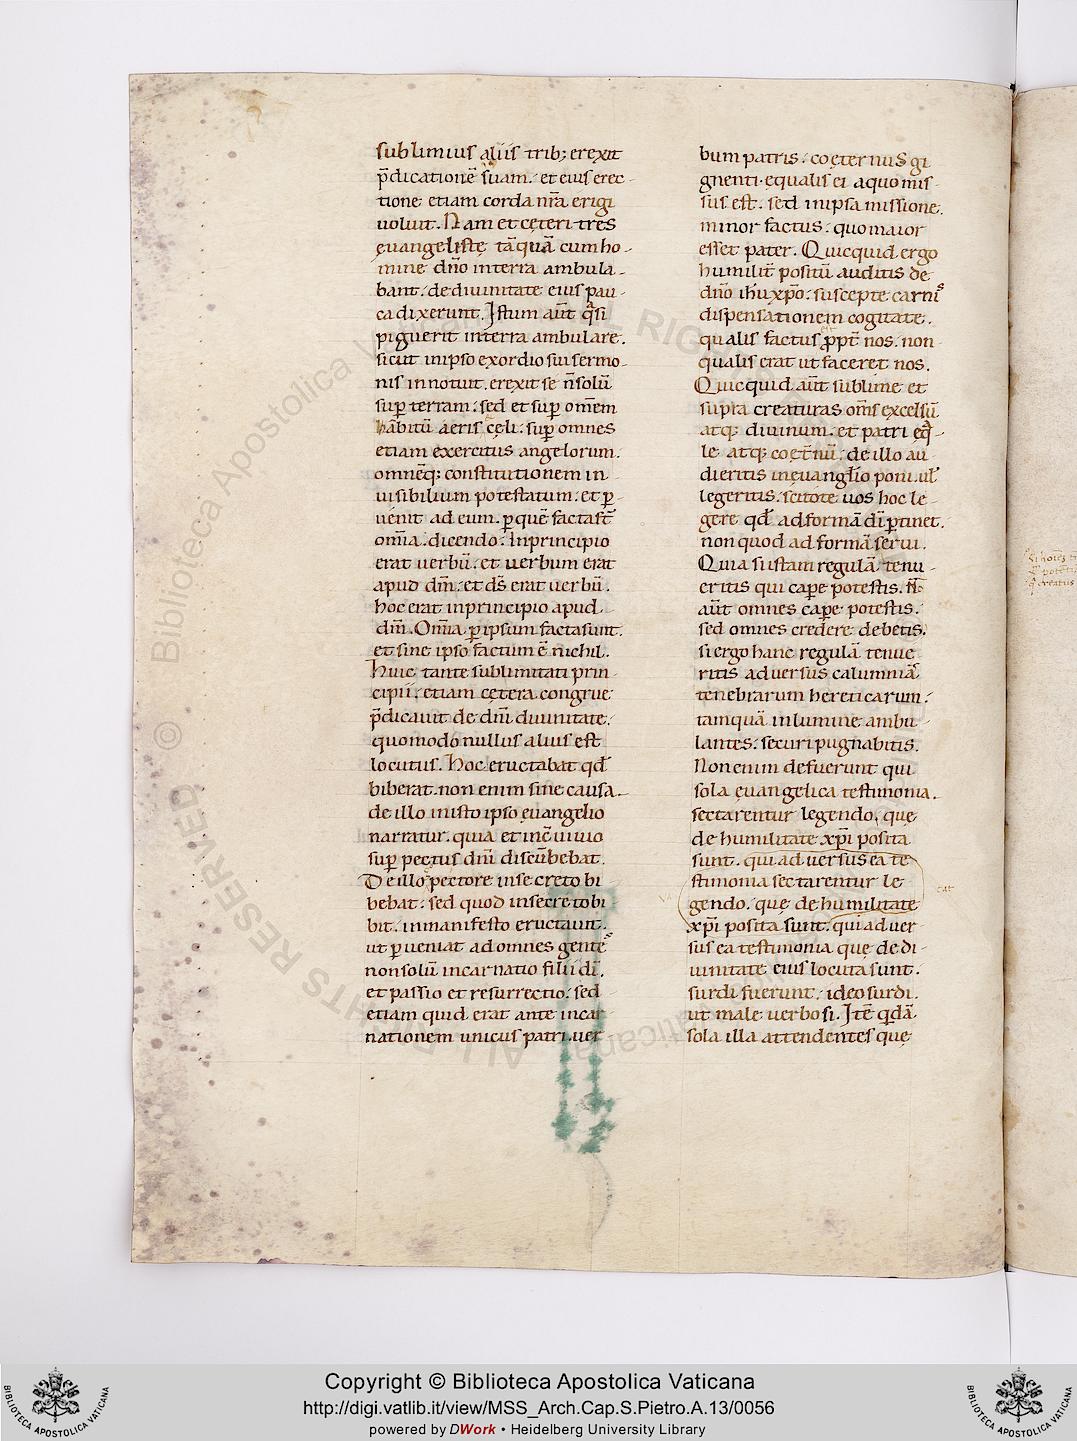 sublimius aliis trib; erexit
p̄dicationē suam. et eius erec-
tione etiam corda nr̄a erigi
uoluit. Nam et cęteri tres
ęuangelistę tāquā cum ho-
mine dn̄o interra ambula-
bant. de diuinitate eius pau-
ca dixerunt. Istum aūt q̄si
piguerit interra ambulare.
sicut inipso exordio sui sermo-
nis innotuit. erexit se n̄ solū
sup̄ terram. sed et sup̄ om̄em
hābitū aeris cęli. sup̄ omnes
etiam exercitus angelorum.
omnēq; constitutionem in
uisibilium potestatum. et p̄-
uenit ad eum. p̄ quē facta st̄
om̄ia. dicendo. Inprincipio
erat uerbū. et uerbum erat
apud dm̄. et ds̄ erat uerbū.
hoc erat inprincipio apud
dm̄. Om̄ia p̄ ipsum facta sunt.
et sine ipso factum ē nichil.
Huic tante sublimitati prin-
cipii. etiam cętera congrue
p̄dicauit de dn̄i diuinitate.
quomodo nullus alius est
locutus. Hoc eructabat qd̄
biberat. non enim sine causa
de illo inisto ipso ęuangelio
narratur. quia et incēuiuio
sup̄ pectus dn̄i discūbebat.
De illo pectore inse creto bi
bebat. sed quod insecreto bi
bit. inmanifesto eructauit.
ut p̄ueniat ad omnes gentes
non solū incarnatio filii dī.
et passio et resurrectio. sed
etiam quid erat ante incar
nationem unicus patri. uer
bum patris. coeternus gi
gnenti. equalis ei a quo mis-
sus est. sed inipsa missione
minor factus. quo maior
esset pater. Quicquid ergo
humilit̄ positū auditis de
dn̄o ih̄u xp̄o. suscepte carnis
dispensationem cogitate.
qualis factus p̄pt̄ nos. non
qualis erat ut faceret nos.
Quicquid aūt sublime et
supra creaturas om̄s excelsū
atq; diuinum. et patri ęq̄-
le atq; coęt̄nū. de illo au
dieritis inęuangl̄io poni. ul̄
legeritis. scitote uos hoc le-
gere qd̄ ad formā dī p̄tinet.
non quod ad formā serui.
Quia si istam regulā tenu-
eritis qui cap̄e potestis. n̄
aūt omnes cap̄e potestis.
sed omnes credere debetis.
si ergo hanc regulā tenue
ritis aduersus calumnias
tenebrarum hereticarum.
tamquā inlumine ambu-
lantes. securi pugnabitis.
Non enim defuerunt qui
sola ęuangelica testimonia
sectarentur legendo. quę
de humilitate xp̄i posita
sunt. qui aduersus ea te
stimonia sectarentur le
gendo. quę de humilitate
xp̄i posita sunt. qui aduer-
sus ea testimonia quę de di-
uinitate eius locuta sunt.
surdi fuerunt. ideo surdi.
ut male uerbosi. Itē q̄dā
sola illa attendentes quę
va
cat
© Biblioteca Apostolica Vaticana ALL RIGHTS RESERVED
BIBLIOTECA APOSTOLICA VATICANA
Copyright © Biblioteca Apostolica Vaticana
http://digi.vatlib.it/view/MSS_Arch.Cap.S.Pietro.A.13/0056
powered by DWork • Heidelberg University Library
BIBLIOTECA APOSTOLICA VATICANA